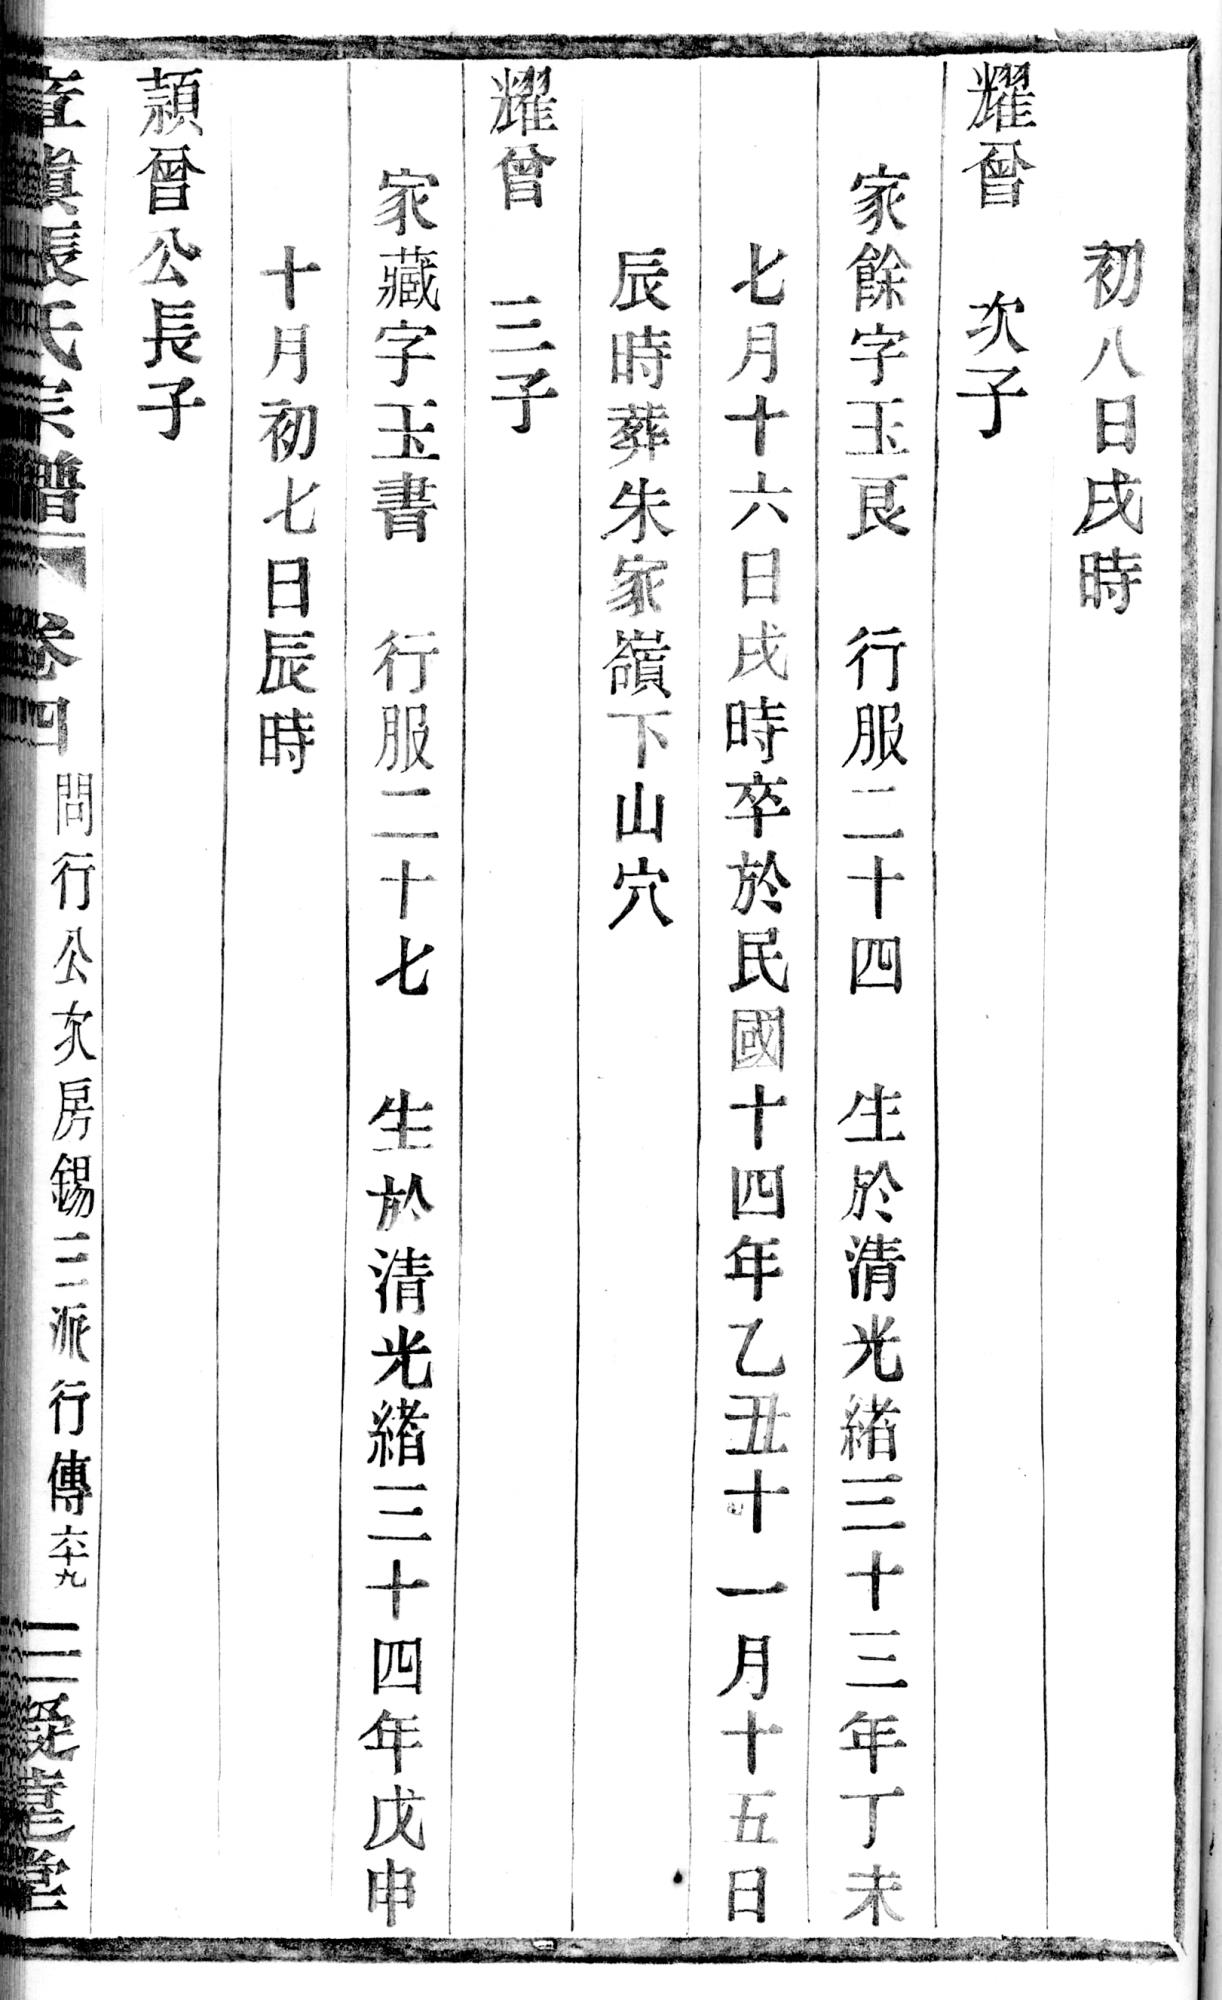 初八日戌時
耀曾　次子
家餘字玉良　行服二十四　生於清光緒三十三年丁未
七月十六日戌時卒於民國十四年乙丑十一月十五日
辰時葬朱家嶺下山穴
耀曾　三子
家藏字玉書　行服二十七　生於清光緒三十四年戊申
十月初七日辰時
頴曾公長子
張氏宗譜　卷四　問行公次房錫三派行傳六十九　三　堂